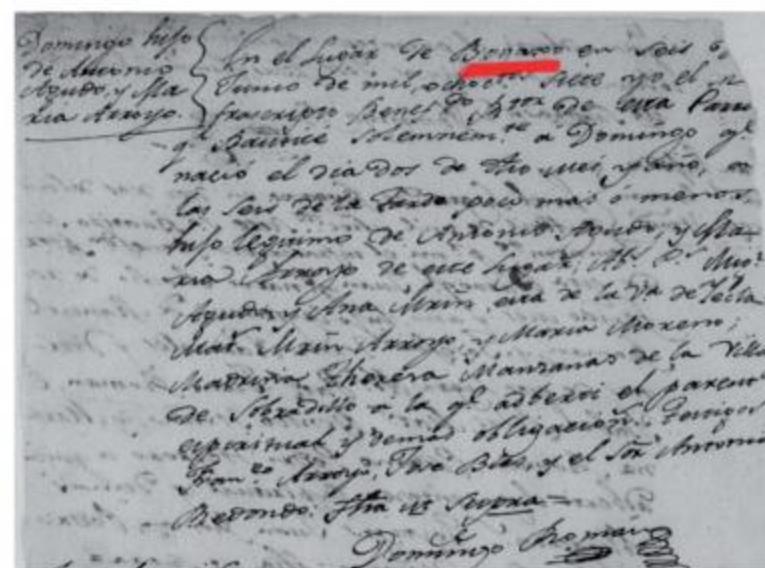 Domingo hijo
de Antonio
Agudo, y Ma
ria Arroyo.
En el Lugar de en seis
Junio de mil, ochoc.tos siete yo el
frascripto Benef.do de esta Parro
q.l Bautice solemnem.te a Domingo q.e
nació el dia dos de dho mes y año,
las seis de la tarde poco mas o menos,
hijo legitimo de Antonio Agudo, y Ma
ria Arroyo de este Lugar; Ab. P.
Agudo, y Ana Mrin, esta de la Va de Yecla
Mat. Mrin Arroyo, y Maria Moreno;
Madrina Theresa Manzanas de la Villa
de Sobradillo a la q.e adberti el parent
espiritual y demas obligacion.s testigos
Fran.co Arroyo, Jose y el Sor Antonio
Redondo. fha ut supra=
Domingo Roman